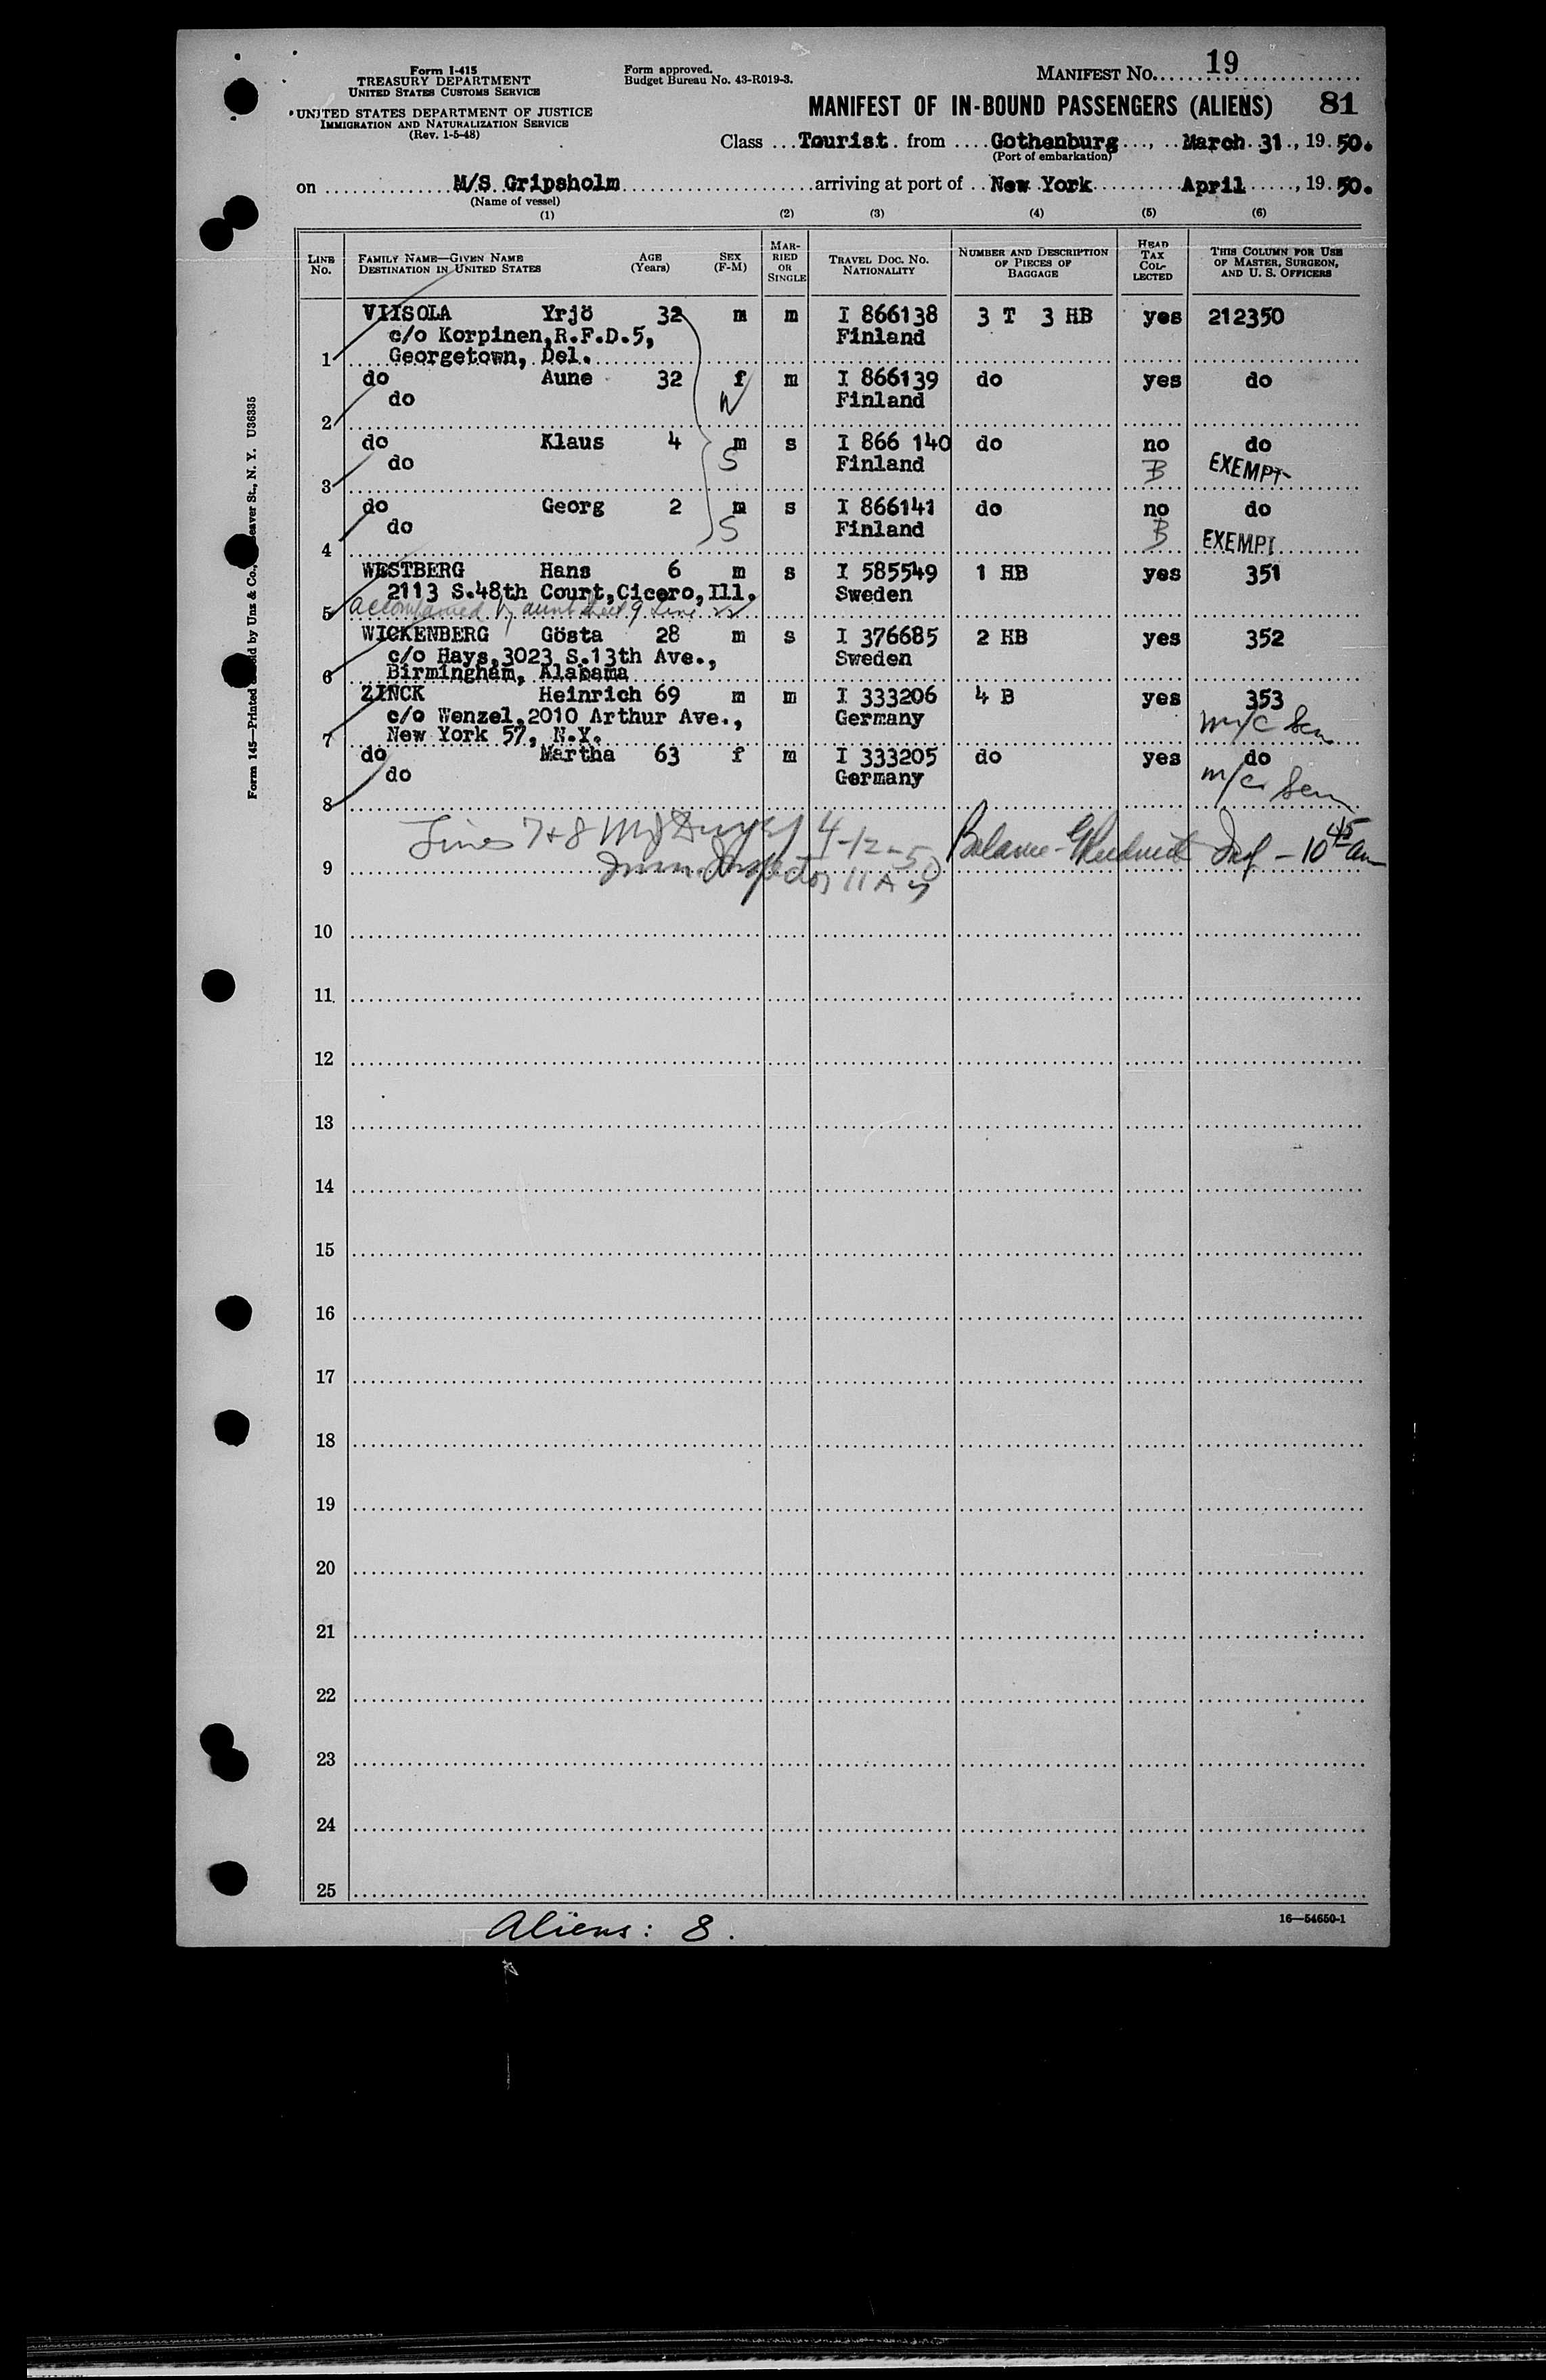 Form I-415
TREASURY DEPARTMENT
UNITED STATES CUSTOMS SERVICE
UNITED STATES DEPARTMENT OF JUSTICE
IMMIGRATION AND NATURALIZATION SERVICE
(Rev. 1-5-48)
Form approved.
Budget Bureau No. 43-R019-3.
MANIFEST NO. 19
MANIFEST OF IN-BOUND PASSENGERS (ALIENS) 81
Class Tourist from Gothenburg, March 31, 19 50.
(Port of embarkation)
on M/S Gripsholm arriving at port of New York April, 19 50.
(Name of vessel)
(1) (2) (3) (4) (5) (6)
LINE No. FAMILY NAME—GIVEN NAME DESTINATION IN UNITED STATES AGE (Years) SEX (F-M) MARRIED OR SINGLE TRAVEL DOC. NO. NATIONALITY NUMBER AND DESCRIPTION OF PIECES OF BAGGAGE HEAD TAX COLLECTED THIS COLUMN FOR USE OF MASTER, SURGEON, AND U. S. OFFICERS
VIISOLA Yrjö 32 m m I 866138 3 T 3 HB yes 212350
c/o Korpinen,R.F.D.5, Finland
1 Georgetown, Del.
do Aune 32 f m I 866139 do yes do
do W Finland
2
do Klaus 4 m s I 866 140 do no do
do S Finland B EXEMPT
3
do Georg 2 m s I 866141 do no do
do S Finland B EXEMPT
4
WESTBERG Hans 6 m s I 585549 1 HB yes 351
2113 S.48th Court,Cicero,Ill. Sweden
5 accompanied by aunt sheet 9 Line 22
WICKENBERG Gösta 28 m s I 376685 2 HB yes 352
c/o Hays,3023 S.13th Ave., Sweden
6 Birmingham, Alabama
ZINCK Heinrich 69 m m I 333206 4 B yes 353
c/o Wenzel,2010 Arthur Ave., Germany m/c Sen
7 New York 57, N.Y.
do Martha 63 f m I 333205 do yes do
do Germany m/c Sen
8
Lines 7+8 4-12-50 Balance - Insp - 10 45 am
9 Imm. Inspector 11 A
10
11
12
13
14
15
16
17
18
19
20
21
22
23
24
25
Aliens: 8.
16—54650-1
Form 145—Printed
ld by Unz & Co.,
eaver St., N. Y. U36335